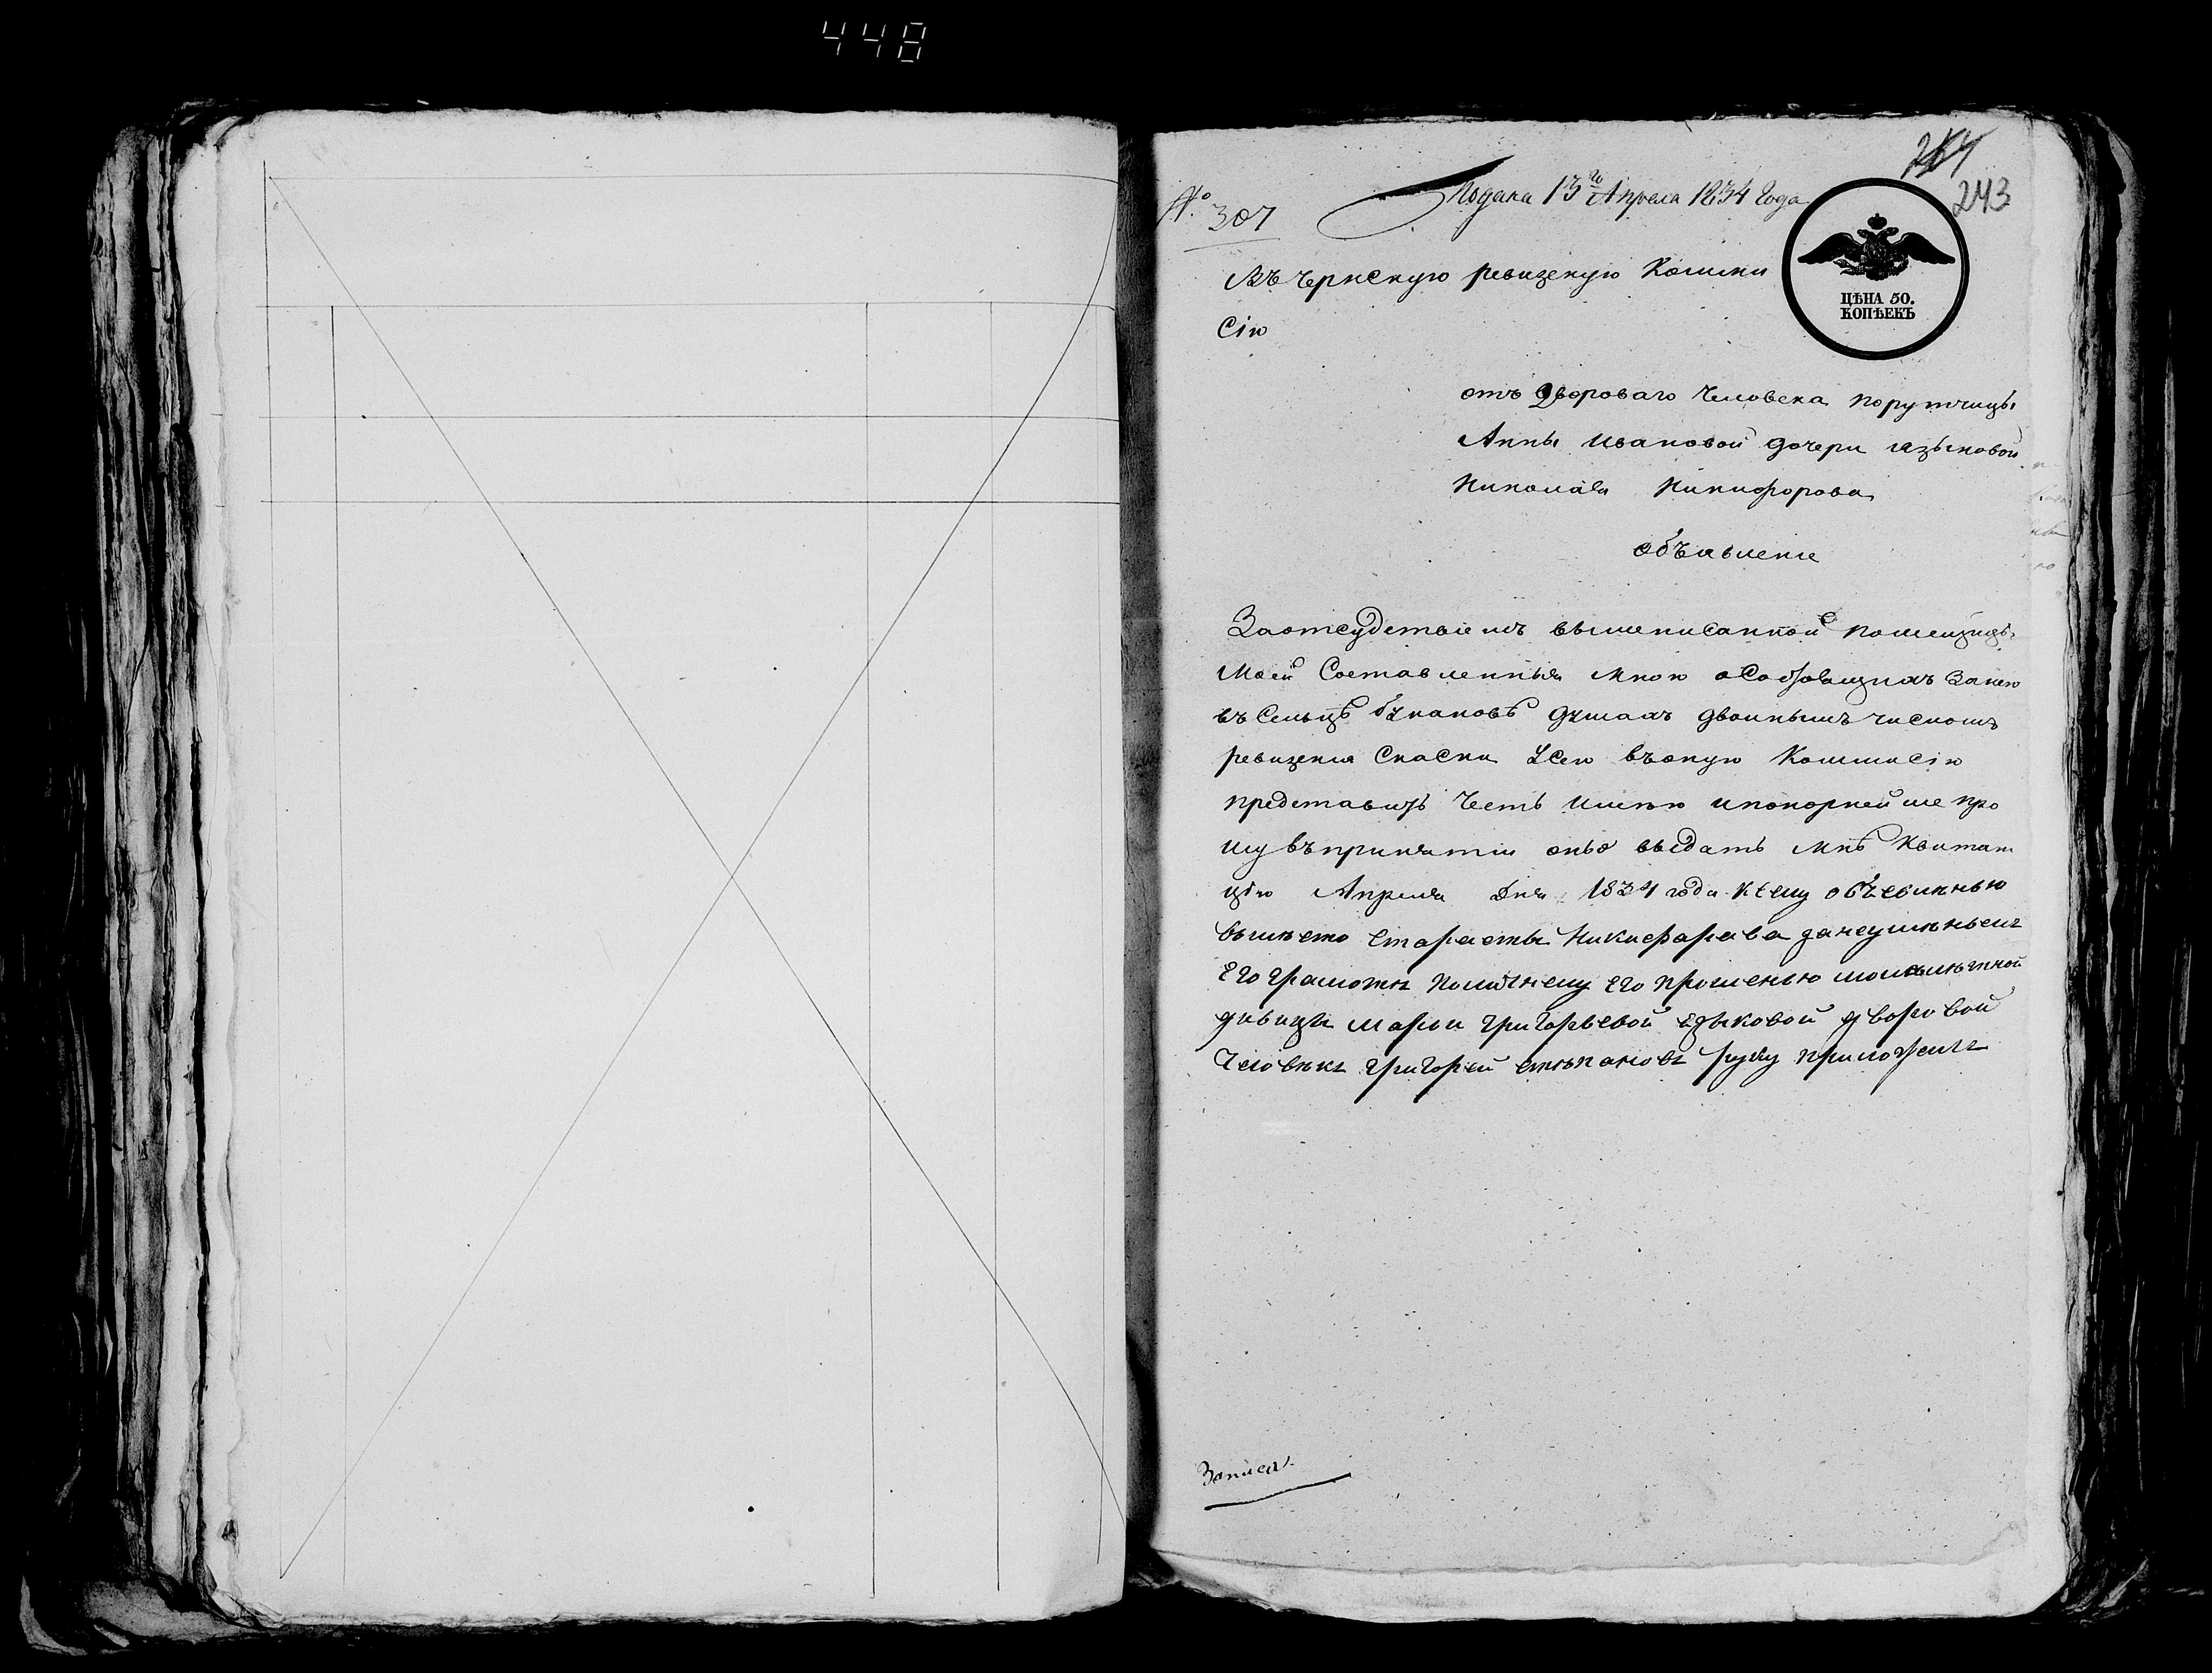 448
264
243
№ 307
Подана 13го Апреля 1834 года
ЦѢНА 50.
КОПѢЕКЪ
Въ Чернскую ревизскую Комми
сiю
отъ Двороваго Человека порутчицы
Анны Ивановой дочери языковой
Николая Никифорова
объявленiе
Заотсудствiемъ вышеписанной помещицы
моей Составленныя мною о Состоящихъ Занею
въ Сельцѣ душахъ двойнымъ числомъ
ревизския Скаски Усею въоную Коммисiю
представить Честь Имею ипокорнейше про
шу въпринятiи оныхъ выдать мнѣ Квитан
цiю Апреля Дня 1834 года Ксему объевленью
вместо старосты Никифарава
Его грамоты Поличнему Его прошенью малолѣтной
дѣвицы Марьи Григорьевой езыковой дворовой
Человѣкъ Григорей степановъ руку приложилъ